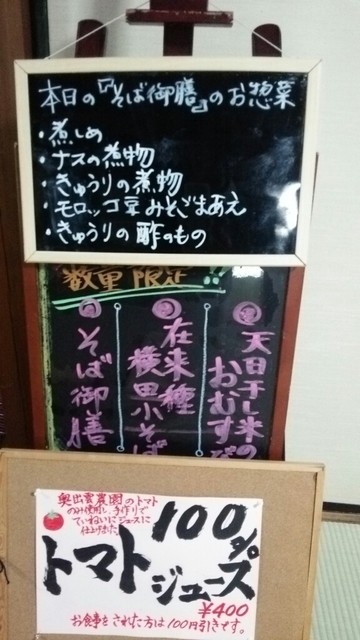 本日の『そば御膳』のお惣菜
・煮しめ
・ナスの煮物
・きゅうりの煮物
・モロッコ豆みそごまあえ
・きゅうりの酢のもの
数量限定!!
天日干し米のおむすび
在来種
横田小そば
そば御膳
奥出雲農園のトマト
のみ使用し、手作りで
ていねいにジュースに
仕上げました。
100%
トマトジュース
¥400
お食事をされた方は100円引きです。